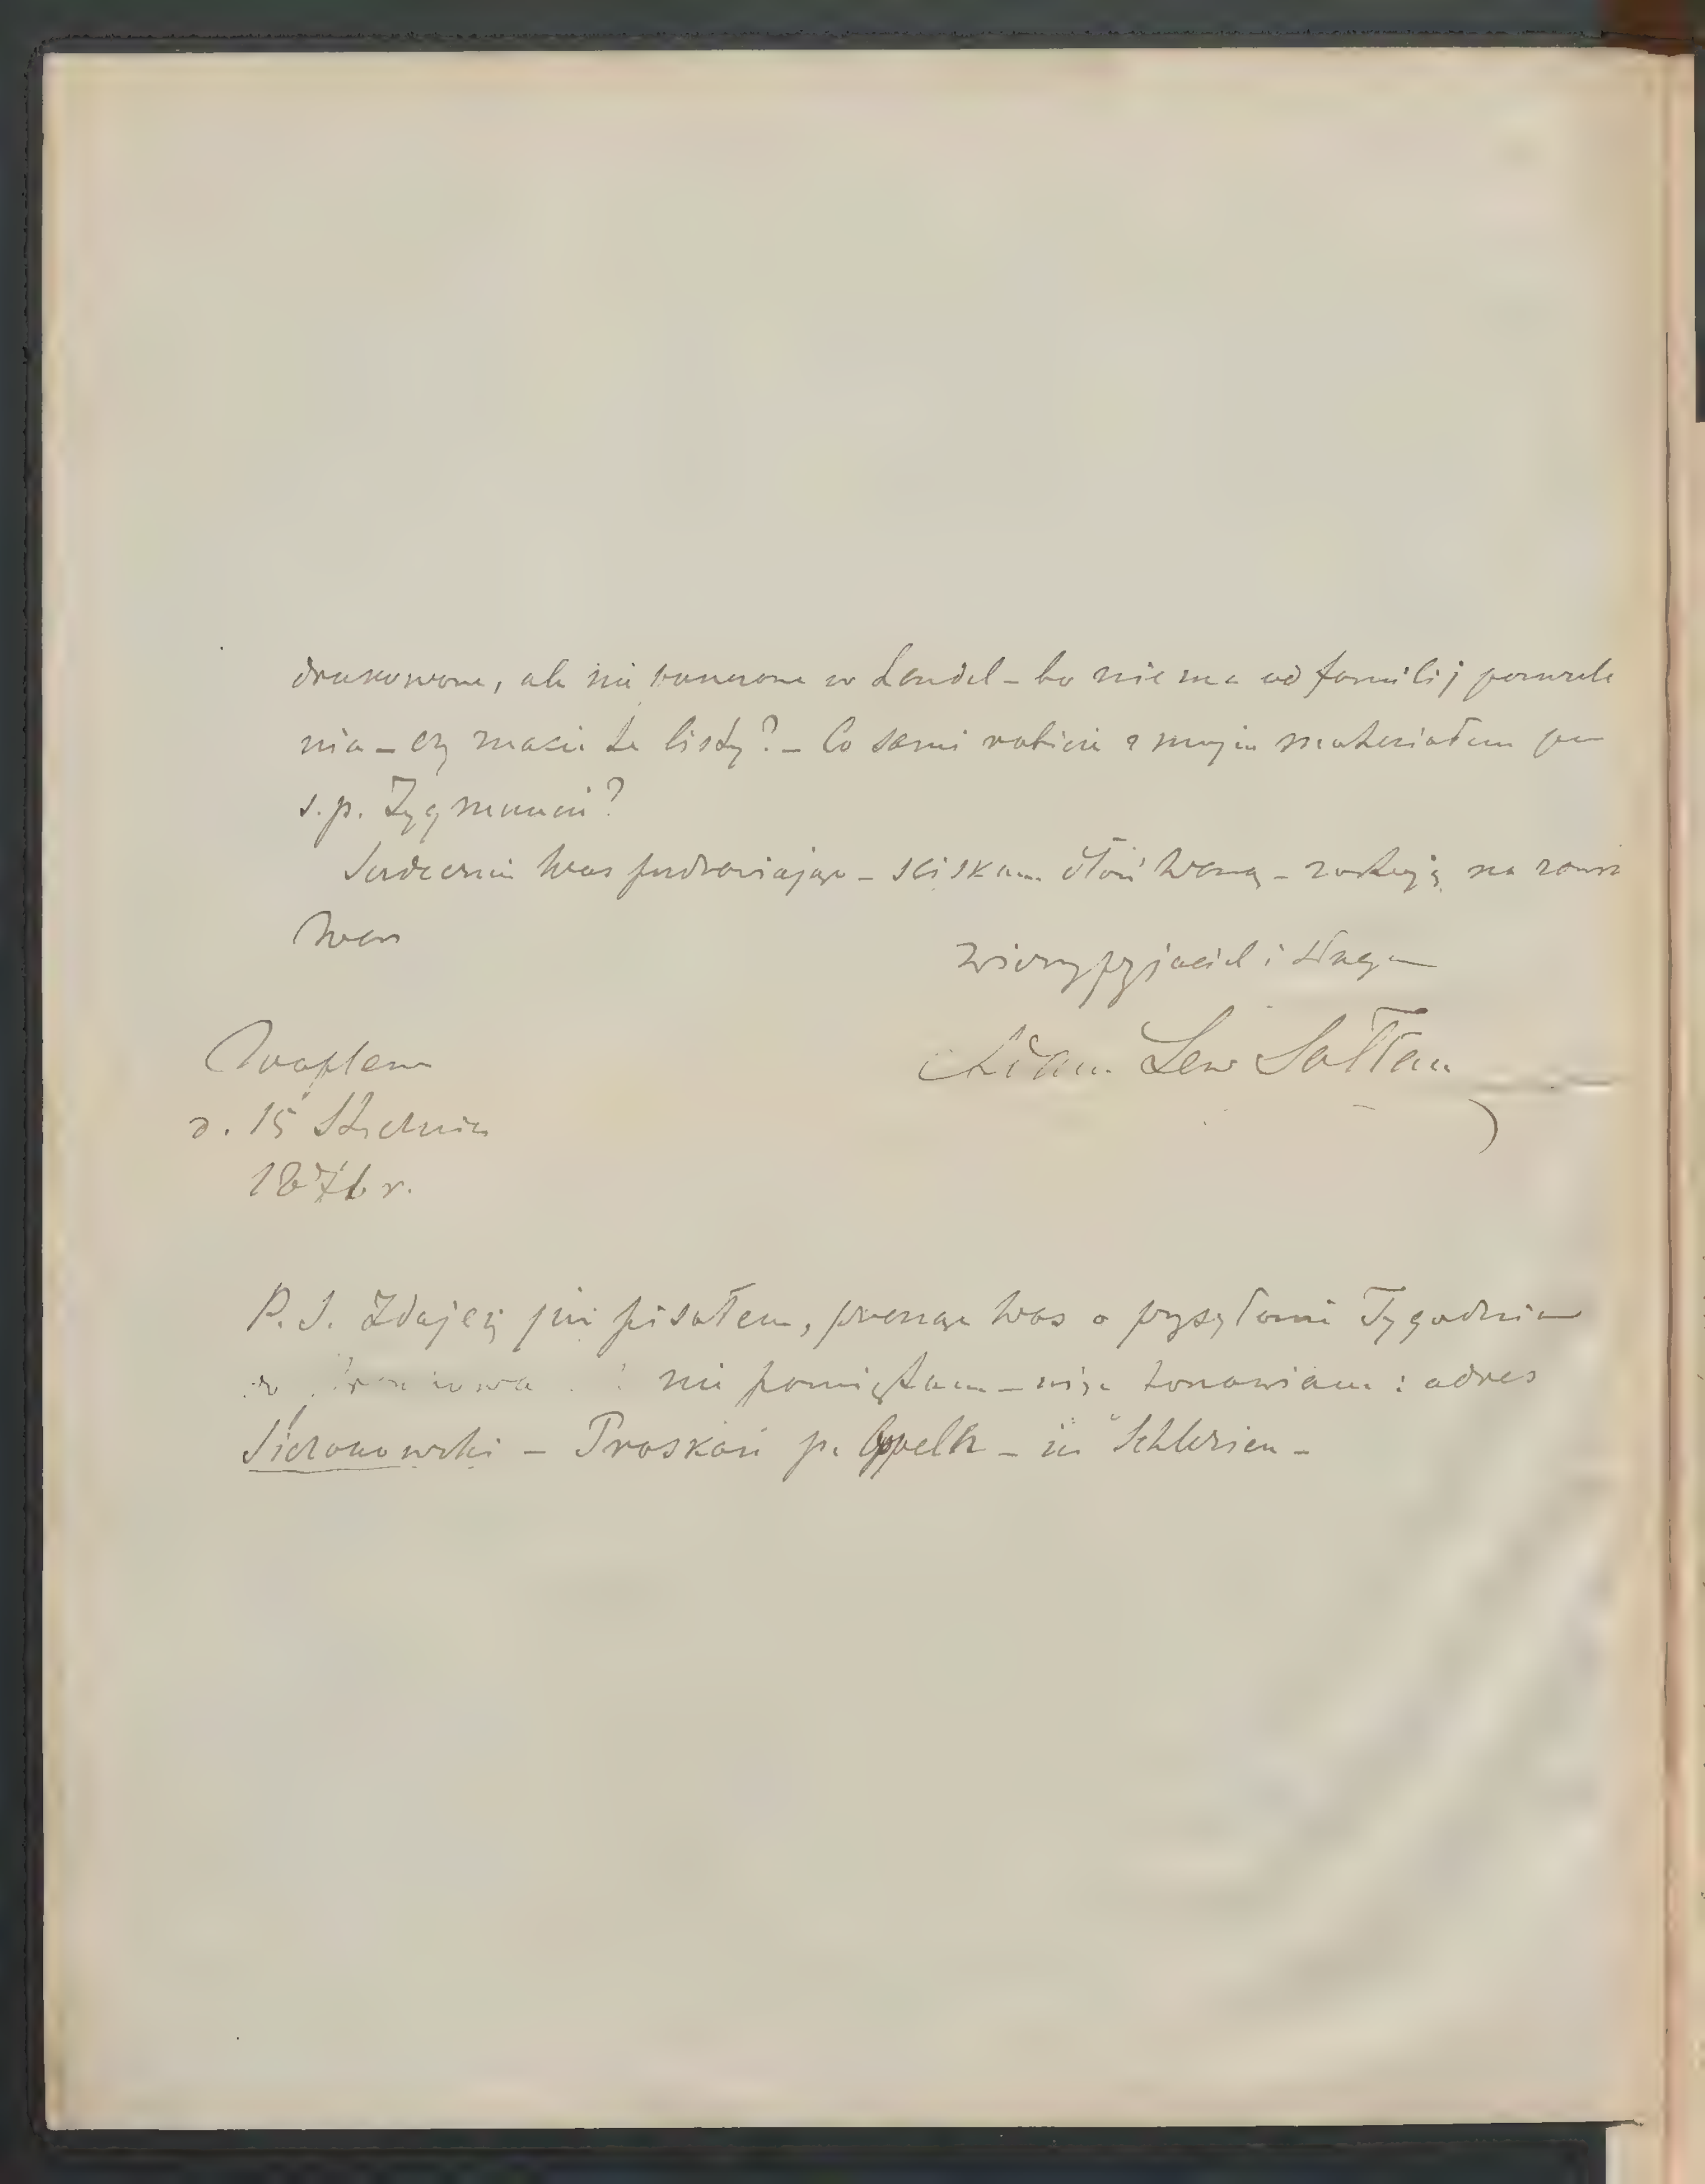 drukowane, ale nie puszczone w handel – bo nie ma od familij pozwole
nia – czy macie te listy? – Co sami robicie z moim materiałem po
s.p. Zygmuncie?
Serdecznie Was pozdrawiając – sciskam dłoń Waszą – zostaję na zawsze
Wasz
wierny przyjaciel i sługa
Adam Lew Sołtan
d. 15 Stycznia
1876 r.
P.S. Zdaje się już pisałem, prosząc Was o przysyłanie Tygodnika
nie pamiętam – więc ponawiam : adres
– Proskau p. Oppeln – in Schlesien –